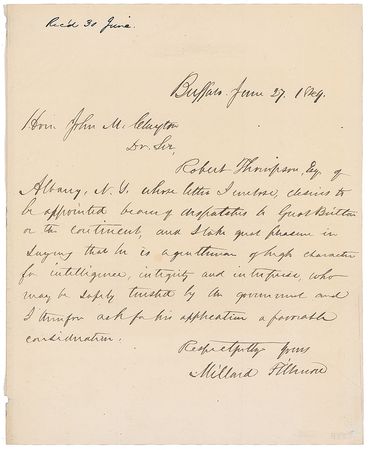 Rec'd 30 June.
Buffalo. June 27. 1849.
Hon. John M. Clayton
Dr. Sir,
Robert Thompson, Esq. of
Albany, N. Y. whose letter I enclose, desires to
be appointed bearer of dispatches to Great Britain
or the continent, and I take great pleasure in
saying that he is a gentleman of high character
for intelligence, integrity and enterprise, who
may be safely trusted by the government and
I therefore ask for his application a favorable
consideration.
Respectfully yours
Millard Fillmore